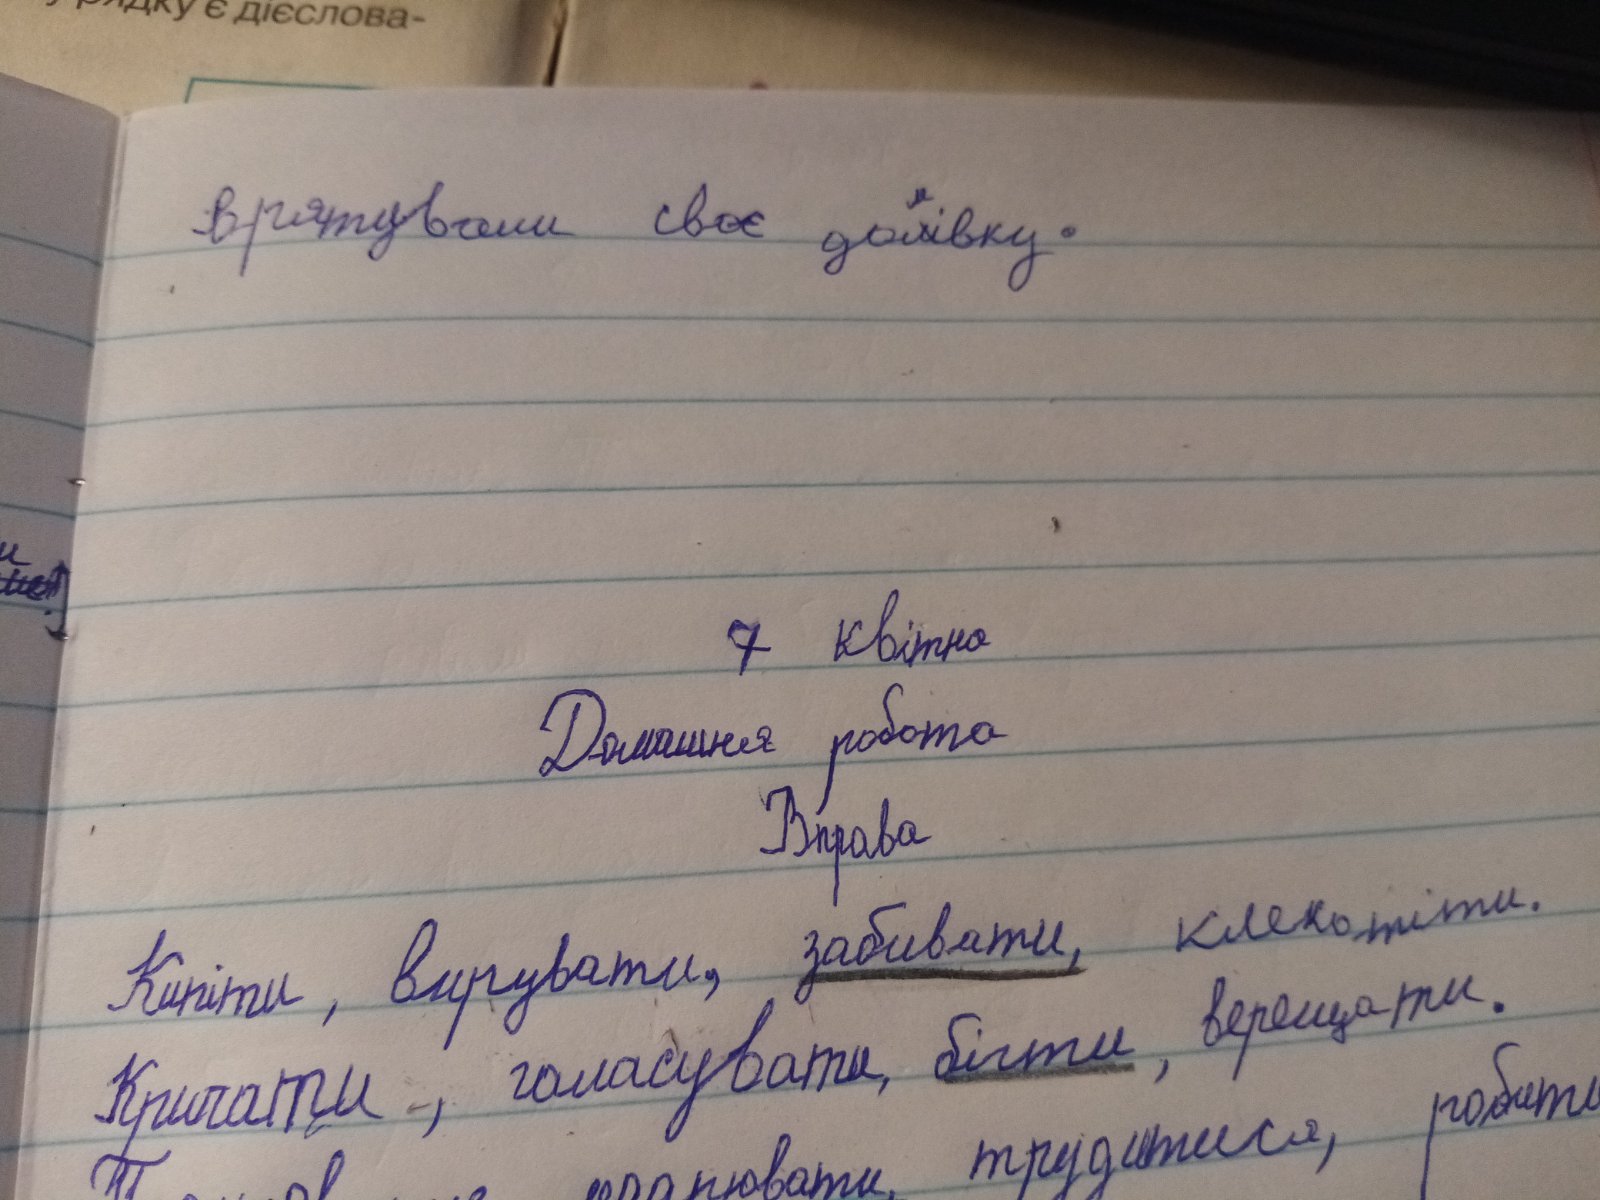 рядку є дієслова-
врятували своє домівку.
7 квітня
Домашня робота
Вправа
Кипіти, вирувати, забивати, клекотіти.
Кричати, голасувати, бігти, верещати.
працювати, трудитися, робити